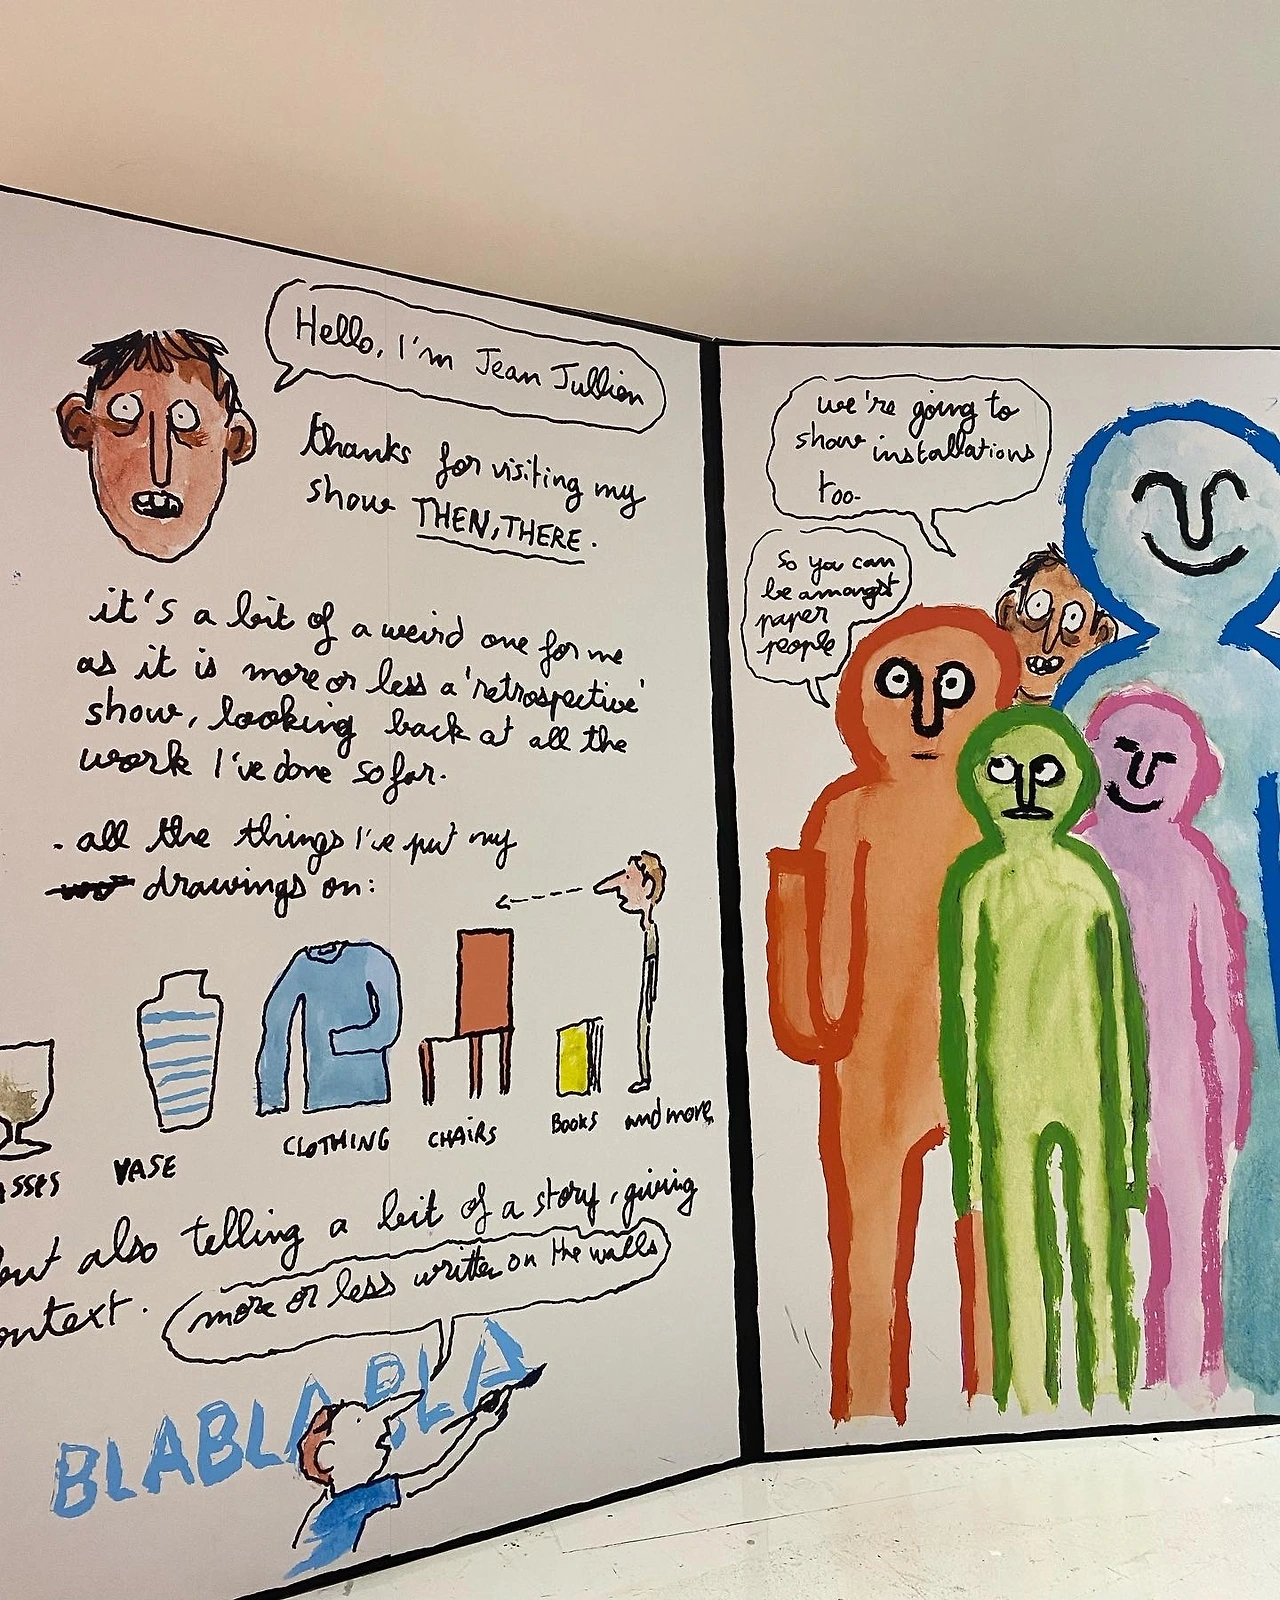 Hello, I'm Jean Jullien
thanks for visiting my
show THEN, THERE.
it's a bit of a weird one for me
as it is more or less a 'retrospective'
show, looking back at all the
work I've done so far.
- all the things I've put my
drawings on:
VASE
CLOTHING
CHAIRS
BOOKS
and more
but also telling a bit of a story, giving
context.
more or less written on the walls
BLABLA BLA
we're going to
show installations
too.
So you can
be amongst
paper
people